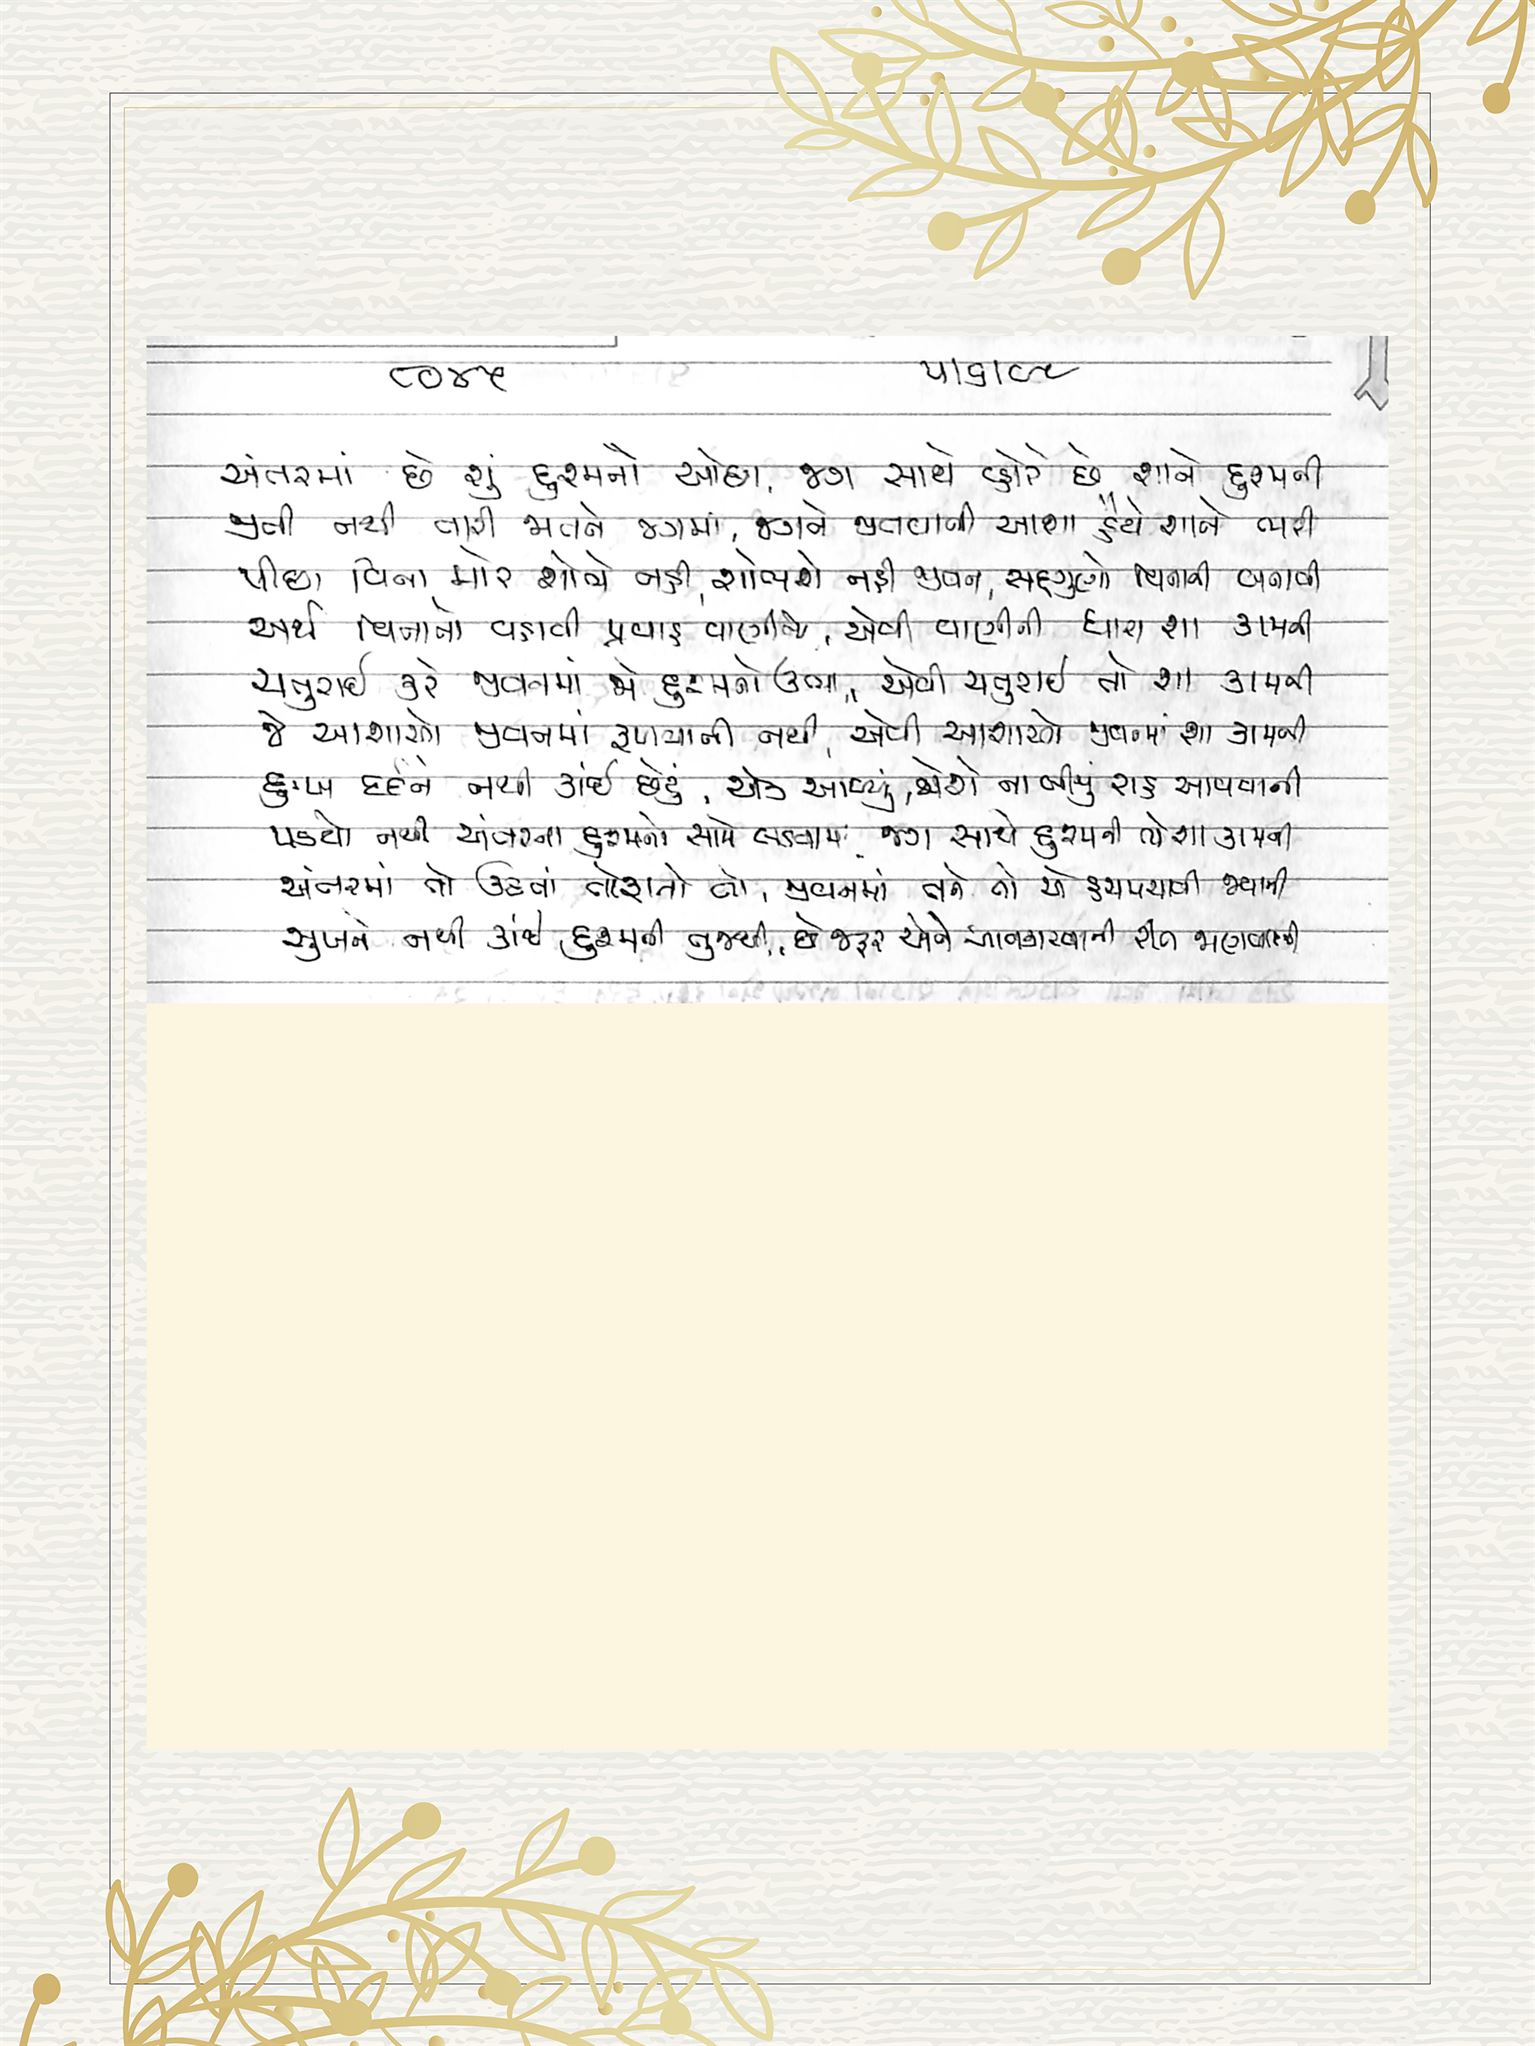 ૮૦૪૫
અંતરમાં છે શું દુશ્મનો ઓછા, જગ સાથે વહોરે છે શાને દુશ્મની
જીતી નથી તારી જાતને જગમાં, જગને જીતવાની આશા હૈયે શાને ભરી
પીંછા વિના મોર શોભે નહીં, શોભશે નહીં જીવન, સદ્ગુણો વિનાની બનાવી
અર્થ વિનાનો વહાવી પ્રવાહ વાણીનો, એવી વાણીની ધારા શા કામની
ચતુરાઈ કરે જીવનમાં જે દુશ્મનો ઊભા, એવી ચતુરાઈ તો શા કામની
જે આશાઓ જીવનમાં રૂપાવાની નથી, એવી આશાઓ જીવનમાં શા કામની
દુઃખ દર્દને નથી કાંઈ છેટું, એક આવ્યું, જોશે ના બીજું રાહ આવવાની
પડયો નથી અંતરના દુશ્મનો સામે લડવામાં, જગ સાથે દુશ્મની શા કામની
અંતરમાં તો ઉઠતાં તોફાનો તો, જીવનમાં તને તો એ હચમચાવી જવાની
સુખને નથી કાંઈ દુશ્મની તુજથી, છે જરૂર એને આવકારવાની રીત જાણવાની